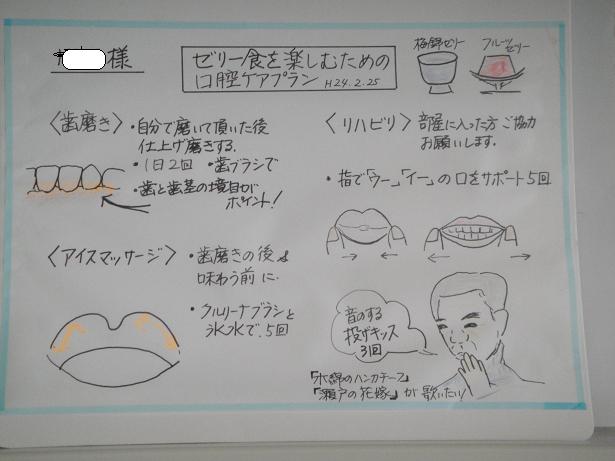 様
ゼリー食を楽しむための
口腔ケアプラン H24.2.25
梅錦ゼリー
フルーツ
ゼリー
〈歯磨き〉
・自分で磨いて頂いた後
仕上げ磨きする。
・1日2回 ・歯ブラシで
・歯と歯茎の境目が
ポイント!
〈アイスマッサージ〉
・歯磨きの後や
味わう前に
・クルリーナブラシと
氷水で.5回
〈リハビリ〉部屋に入った方ご協力
お願いします。
・指で「ウー」「イー」の口をサポート5回
音のする
投げキッス
3回
「木綿のハンカチーフ」
「瀬戸の花嫁」が歌いたい